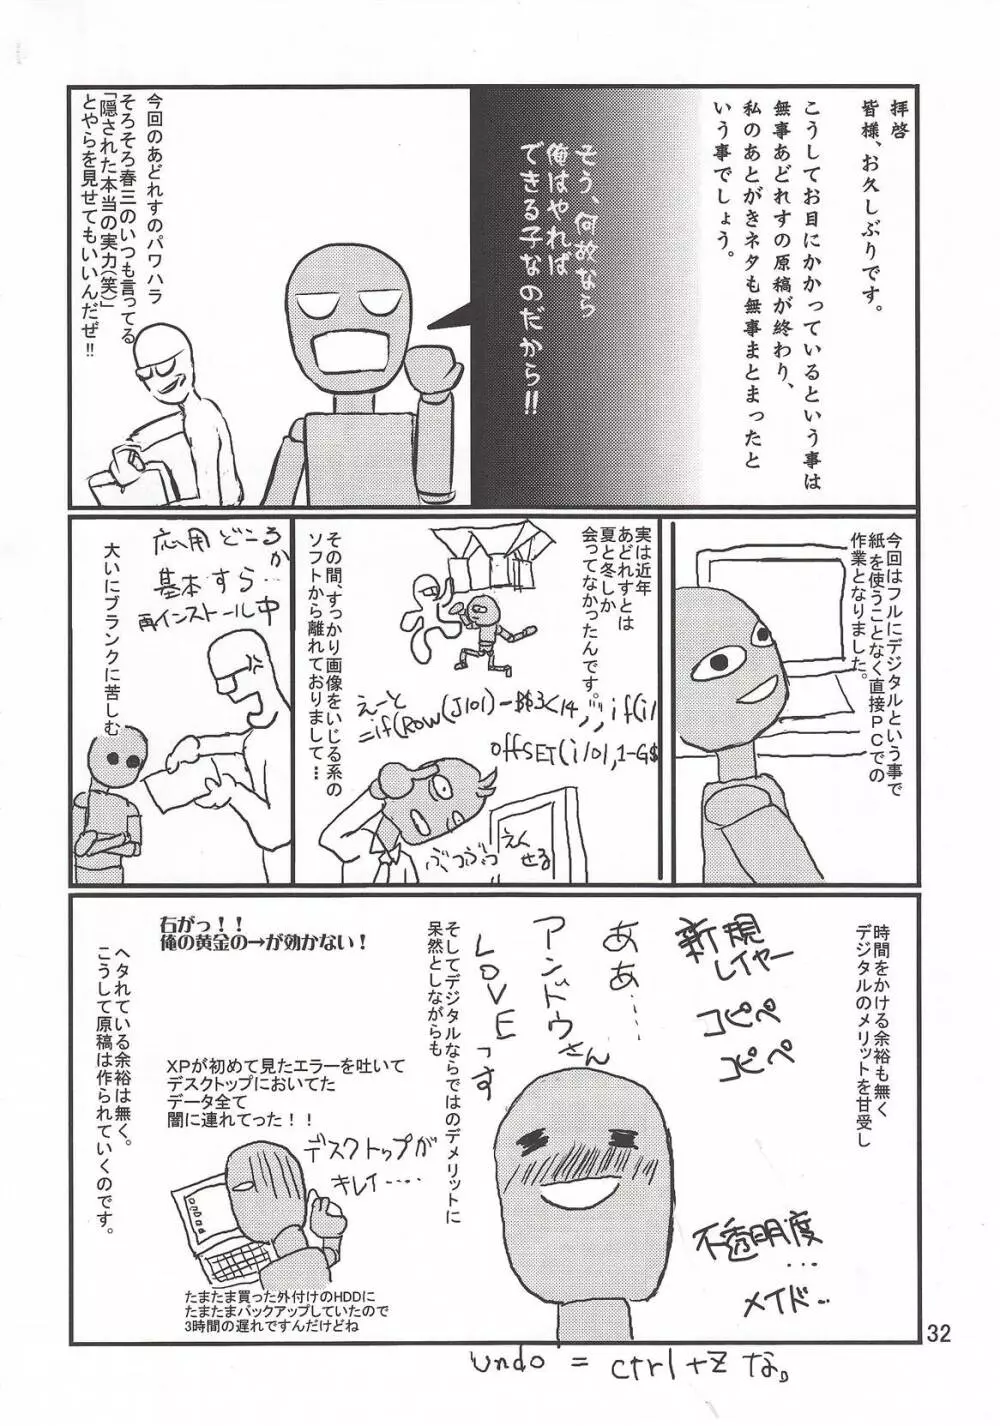 拝啓
皆様、お久しぶりです。
こうしてお目にかかっているという事は
無事あどれすの原稿が終わり、
私のあとがきネタも無事まとまったと
いう事でしょう。
そう、何故なら
俺はやれば
できる子なのだから!!
今回のあどれすのパワハラ
そろそろ春三のいつも言ってる
「隠された本当の実力(笑)」
とやらを見せてもいいんだぜ!!
今回はフルにデジタルという事で
紙を使うことなく直接PCでの
作業となりました。
実は近年
あどれすとは
夏と冬しか
会ってなかったんです。
その間、すっかり画像をいじる系の
ソフトから離れておりまして…
えーと
=if(ROW(J101)-$$3<14,",",if(i1
OffSET(i101,1-G$
ぶつぶつ
えく
せる
応用どころか
基本すら…
再インストール中
大いにブランクに苦しむ
時間をかける余裕も無く
デジタルのメリットを甘受し
新規
レイヤー
コピペ
コピペ
不透明度
…
メイド…
ああ…
アンドウさん
LOVEっす
そしてデジタルならではのデメリットに
呆然としながらも
右がっ!!
俺の黄金の→が効かない!
XPが初めて見たエラーを吐いて
デスクトップにおいてた
データ全て
闇に連れてった!!
デスクトップが
キレイ……
たまたま買った外付けのHDDに
たまたまバックアップしていたので
3時間の遅れですんだけどね
ヘタれている余裕は無く。
こうして原稿は作られていくのです。
undo = ctrl+Z な。
32